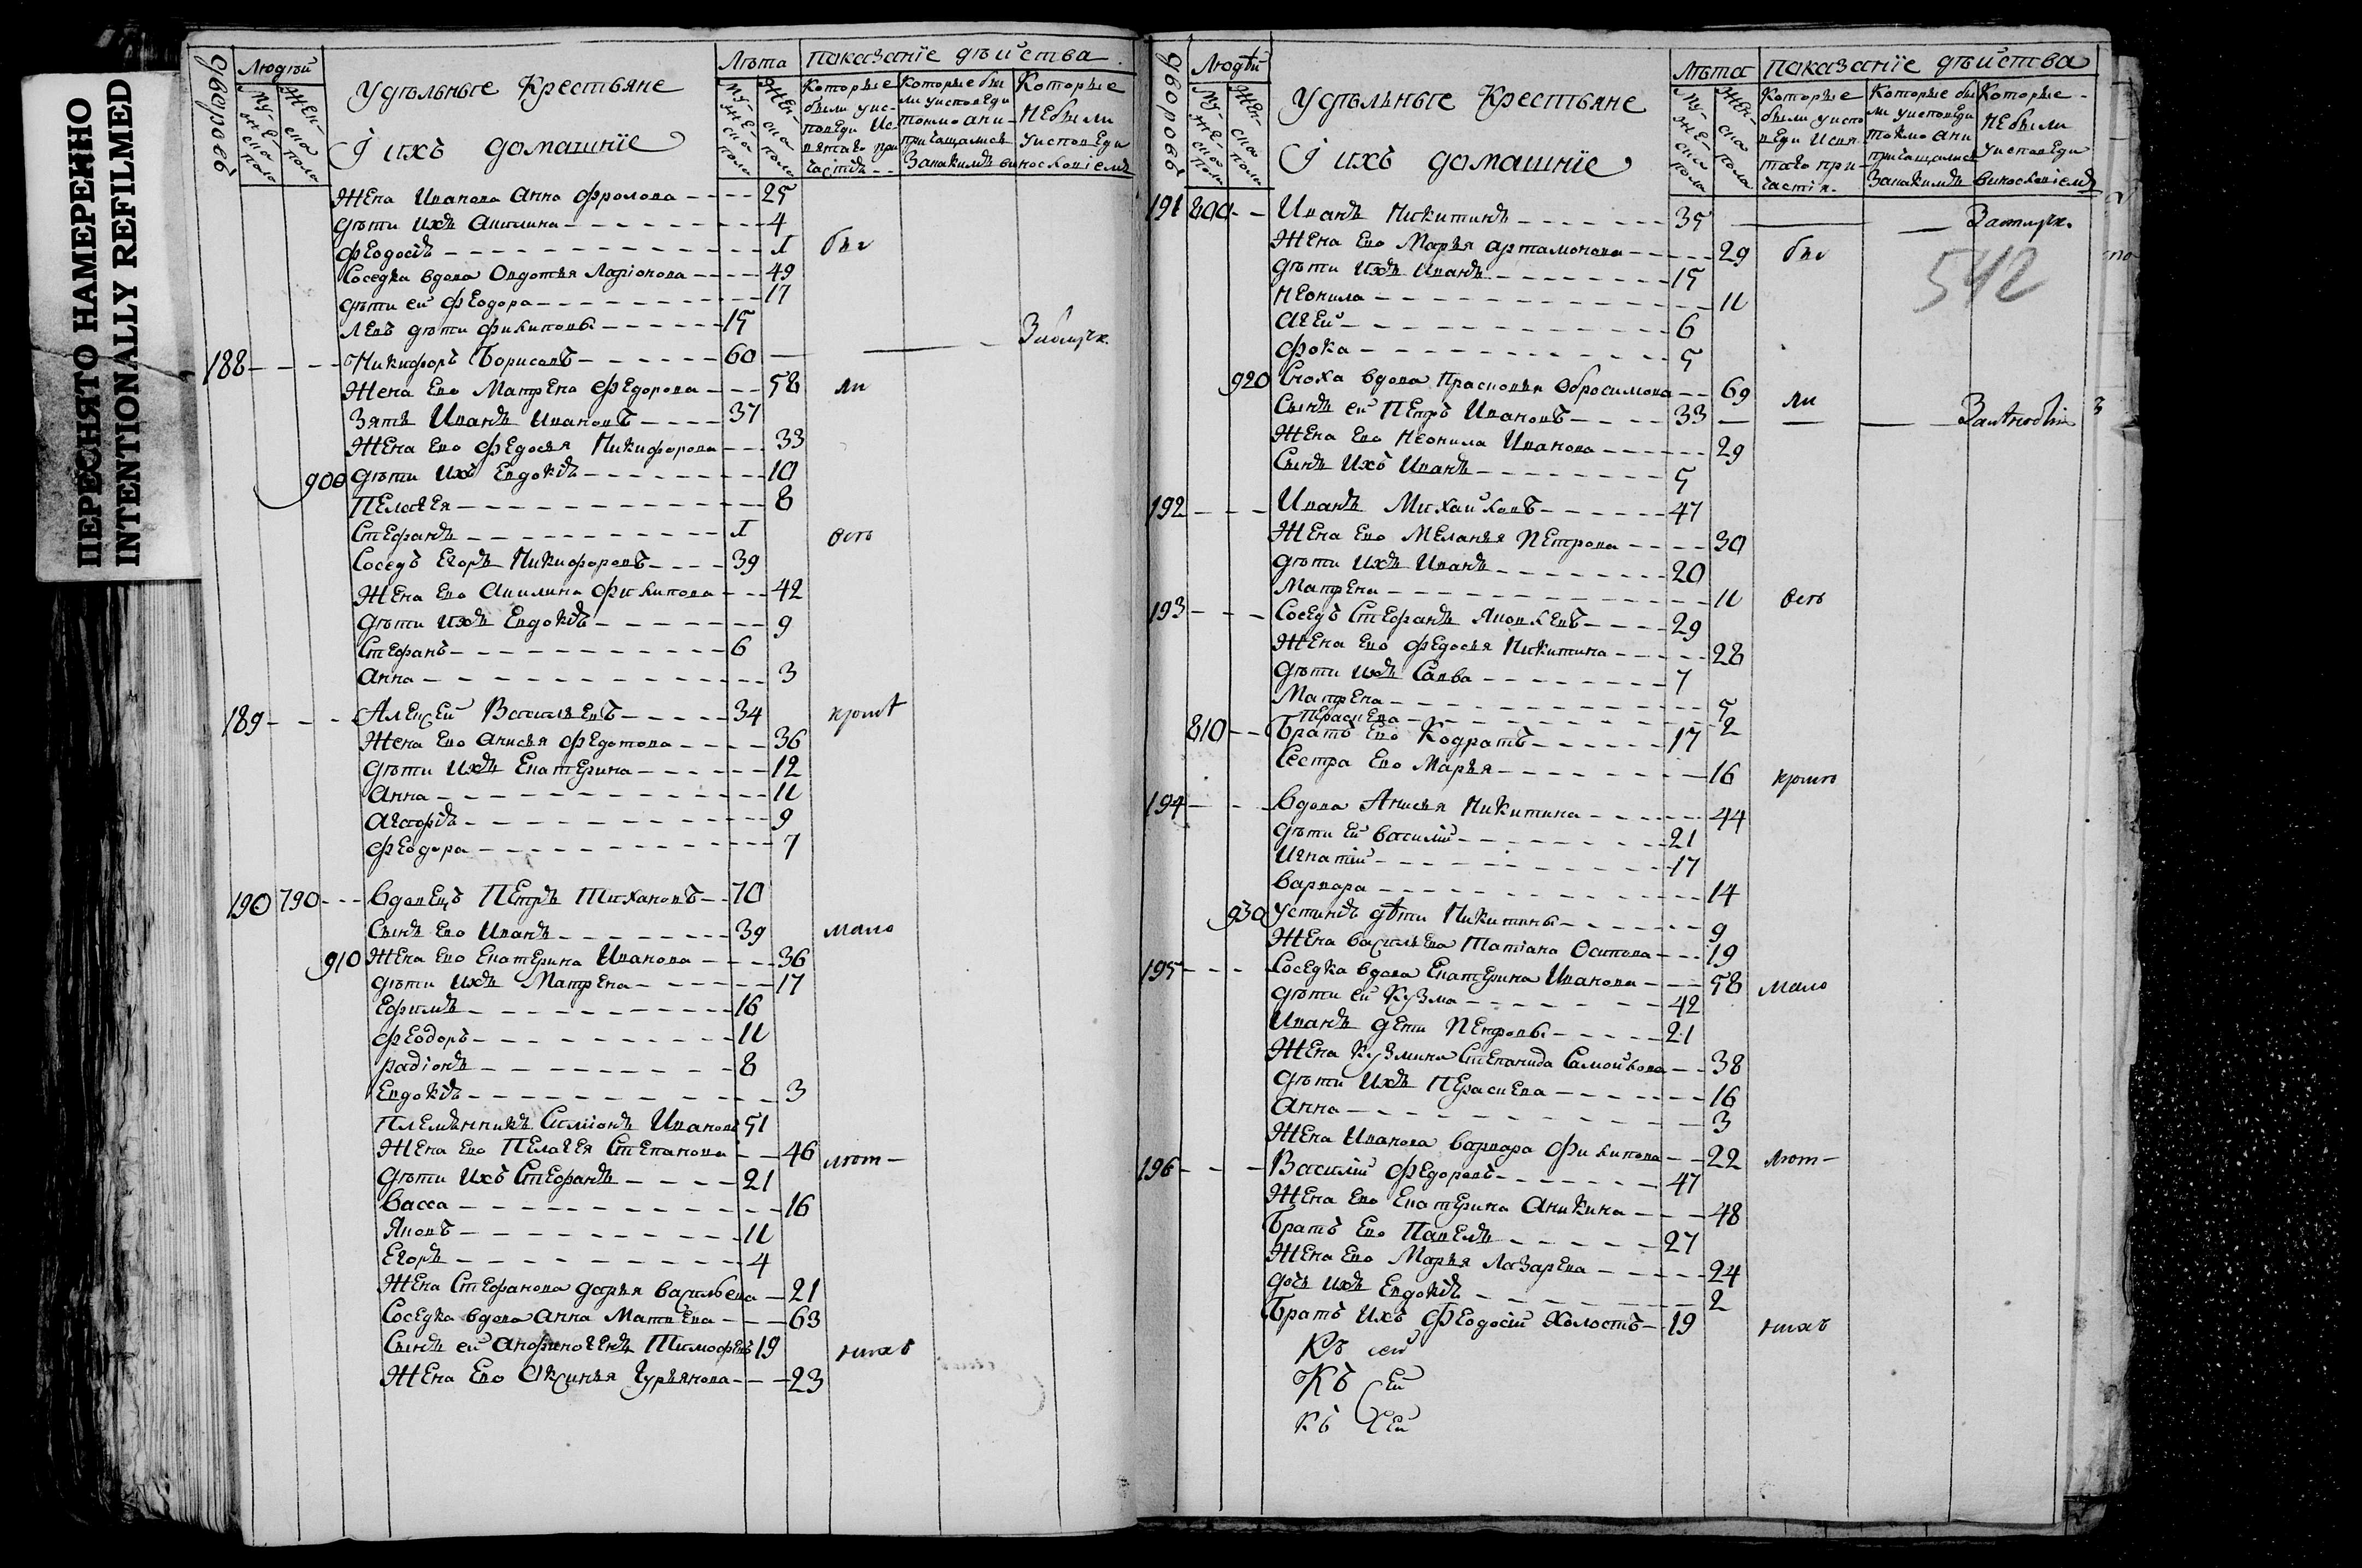 ПЕРЕСНЯТО НАМЕРЕННО
INTENTIONALLY REFILMED
дворовъ
Людѣй
Муже-ска пола
Жен-ска пола
Удѣльные Крестьяне
I ихъ домашнїе
Лѣта
Муже-ска пола
Жен-ска пола
показанїе дѣйства
Которые были уис-повЕди
Которые бы-ли уисповЕди токмо а ни-причащались
Которые НЕбыли уисповЕди
ЖЕна Иванова Анна Фролова 25
дѣти ихъ Акилина 4
ФЕодосїѣ 1 бы
Соседка вдова Овдотья Ларїонова 49
дѣти ей ФЕодора 17
Левъ дѣти Филиповы 15
188 Никифоръ Борисовъ 60
Жена Ево МатрЕна ФЕдорова 58 ли
Зять Иванъ Ивановъ 37
ЖЕна Ево ФЕдосья Никифорова 33
900 дѣти ихъ Евдокїѣ 10
ПЕлагЕя 8
СтЕфанъ 1 всѣ
Соседъ Егоръ Никифоровъ 39
ЖЕна Ево Акилина Филипова 42
дѣти ихъ Евдокїѣ 9
СтЕфанъ 6
Анна 3
189 АлЕксЕй ВасильЕвъ 34 кромѣ
Жена Ево Анисья ФЕдотова 36
дѣти ихъ ЕкатЕрина 12
Анна 11
Агафїѣ 9
ФЕодора 7
190 790 вдовЕцъ ПЕтръ Тихановъ 70
Сынъ Ево Иванъ 39 мало
910 ЖЕна Ево ЕкатЕрина Иванова 36
дѣти ихъ МатрЕна 17
Ефимъ 16
ФЕодоръ 11
Радїонъ 8
Евдокїѣ 3
ПлЕмѣнникъ Симїонъ Ивановъ 51
ЖЕна Ево ПЕлагЕя СтЕпанова 46 лѣт-
дѣти ихъ СтЕфанъ 21
васса 16
Яковъ 11
Егоръ 4
ЖЕна СтЕфанова дарья васильева 21
СосЕдка вдова Анна МатвЕва 63
Сынъ ей АнфиногЕнъ ТимофЕвъ 19 нихъ
ЖЕна Ево Аксинья Гурьянова 23
дворовъ
Людѣй
Муже-ска пола
Жен-ска пола
Удѣльные Крестьяне
I ихъ домашнїе
Лѣта
Муже-ска пола
Жен-ска пола
показанїе дѣйства
Которые были уиспо-вЕди
Которые бы-ли уисповЕди токмо а ни причащались
Которые НЕбыли уисповЕди
191 800 Иванъ Никитинъ 35
ЖЕна Ево Марья Артамонова 29 бы
542
дѣти ихъ Иванъ 15
НЕонила 11
АгЕй 6
Фока 5
920 Сноха вдова Прасковья Обросимова 69 ли
Сынъ ей ПЕтръ Ивановъ 33
ЖЕна Ево НЕонила Иванова 29
Сынъ ихъ Иванъ 5
192 Иванъ Михайловъ 47
ЖЕна Ево МЕланья ПЕтрова 30
дѣти ихъ Иванъ 20
МатрЕна 11 всѣ
193 СосЕдъ СтЕфанъ ЯковлЕвъ 29
ЖЕна Ево ФЕдосья Никитина 28
дѣти ихъ Савва 7
МатрЕна 5
ПЕраскЕва 2
810 Братъ Ево Кодратъ 17
Сестра Ево Марья 16 кромѣ
194 вдова Анисья Никитина 44
дѣти ей василїй 21
Игнатїй 17
варвара 14
930 Устинїѣ дѣти Никитины 9
ЖЕна васильЕва Татїана Осипова 19
195 СосЕдка вдова ЕкатЕрина Иванова 58 мало
дѣти ей Кузма 42
Иванъ дЕти ПЕтровы 21
ЖЕна Кузмина СтЕпанида Самойлова 38
дѣти ихъ ПЕраскЕва 16
Анна 3
ЖЕна Иванова варвара Филипова 22 лѣт-
196 Василїй ФЕдоровъ 47
ЖЕна Ево ЕкатЕрина Аникина 48
Братъ Ево ПавЕлъ 27
ЖЕна Ево Марья ЛазарЕва 24
дочь ихъ Евдокїѣ 2
Братъ ихъ ФЕодосїй Холостъ 19 нихъ
Къ сей
Къ сЕй
Къ сЕй